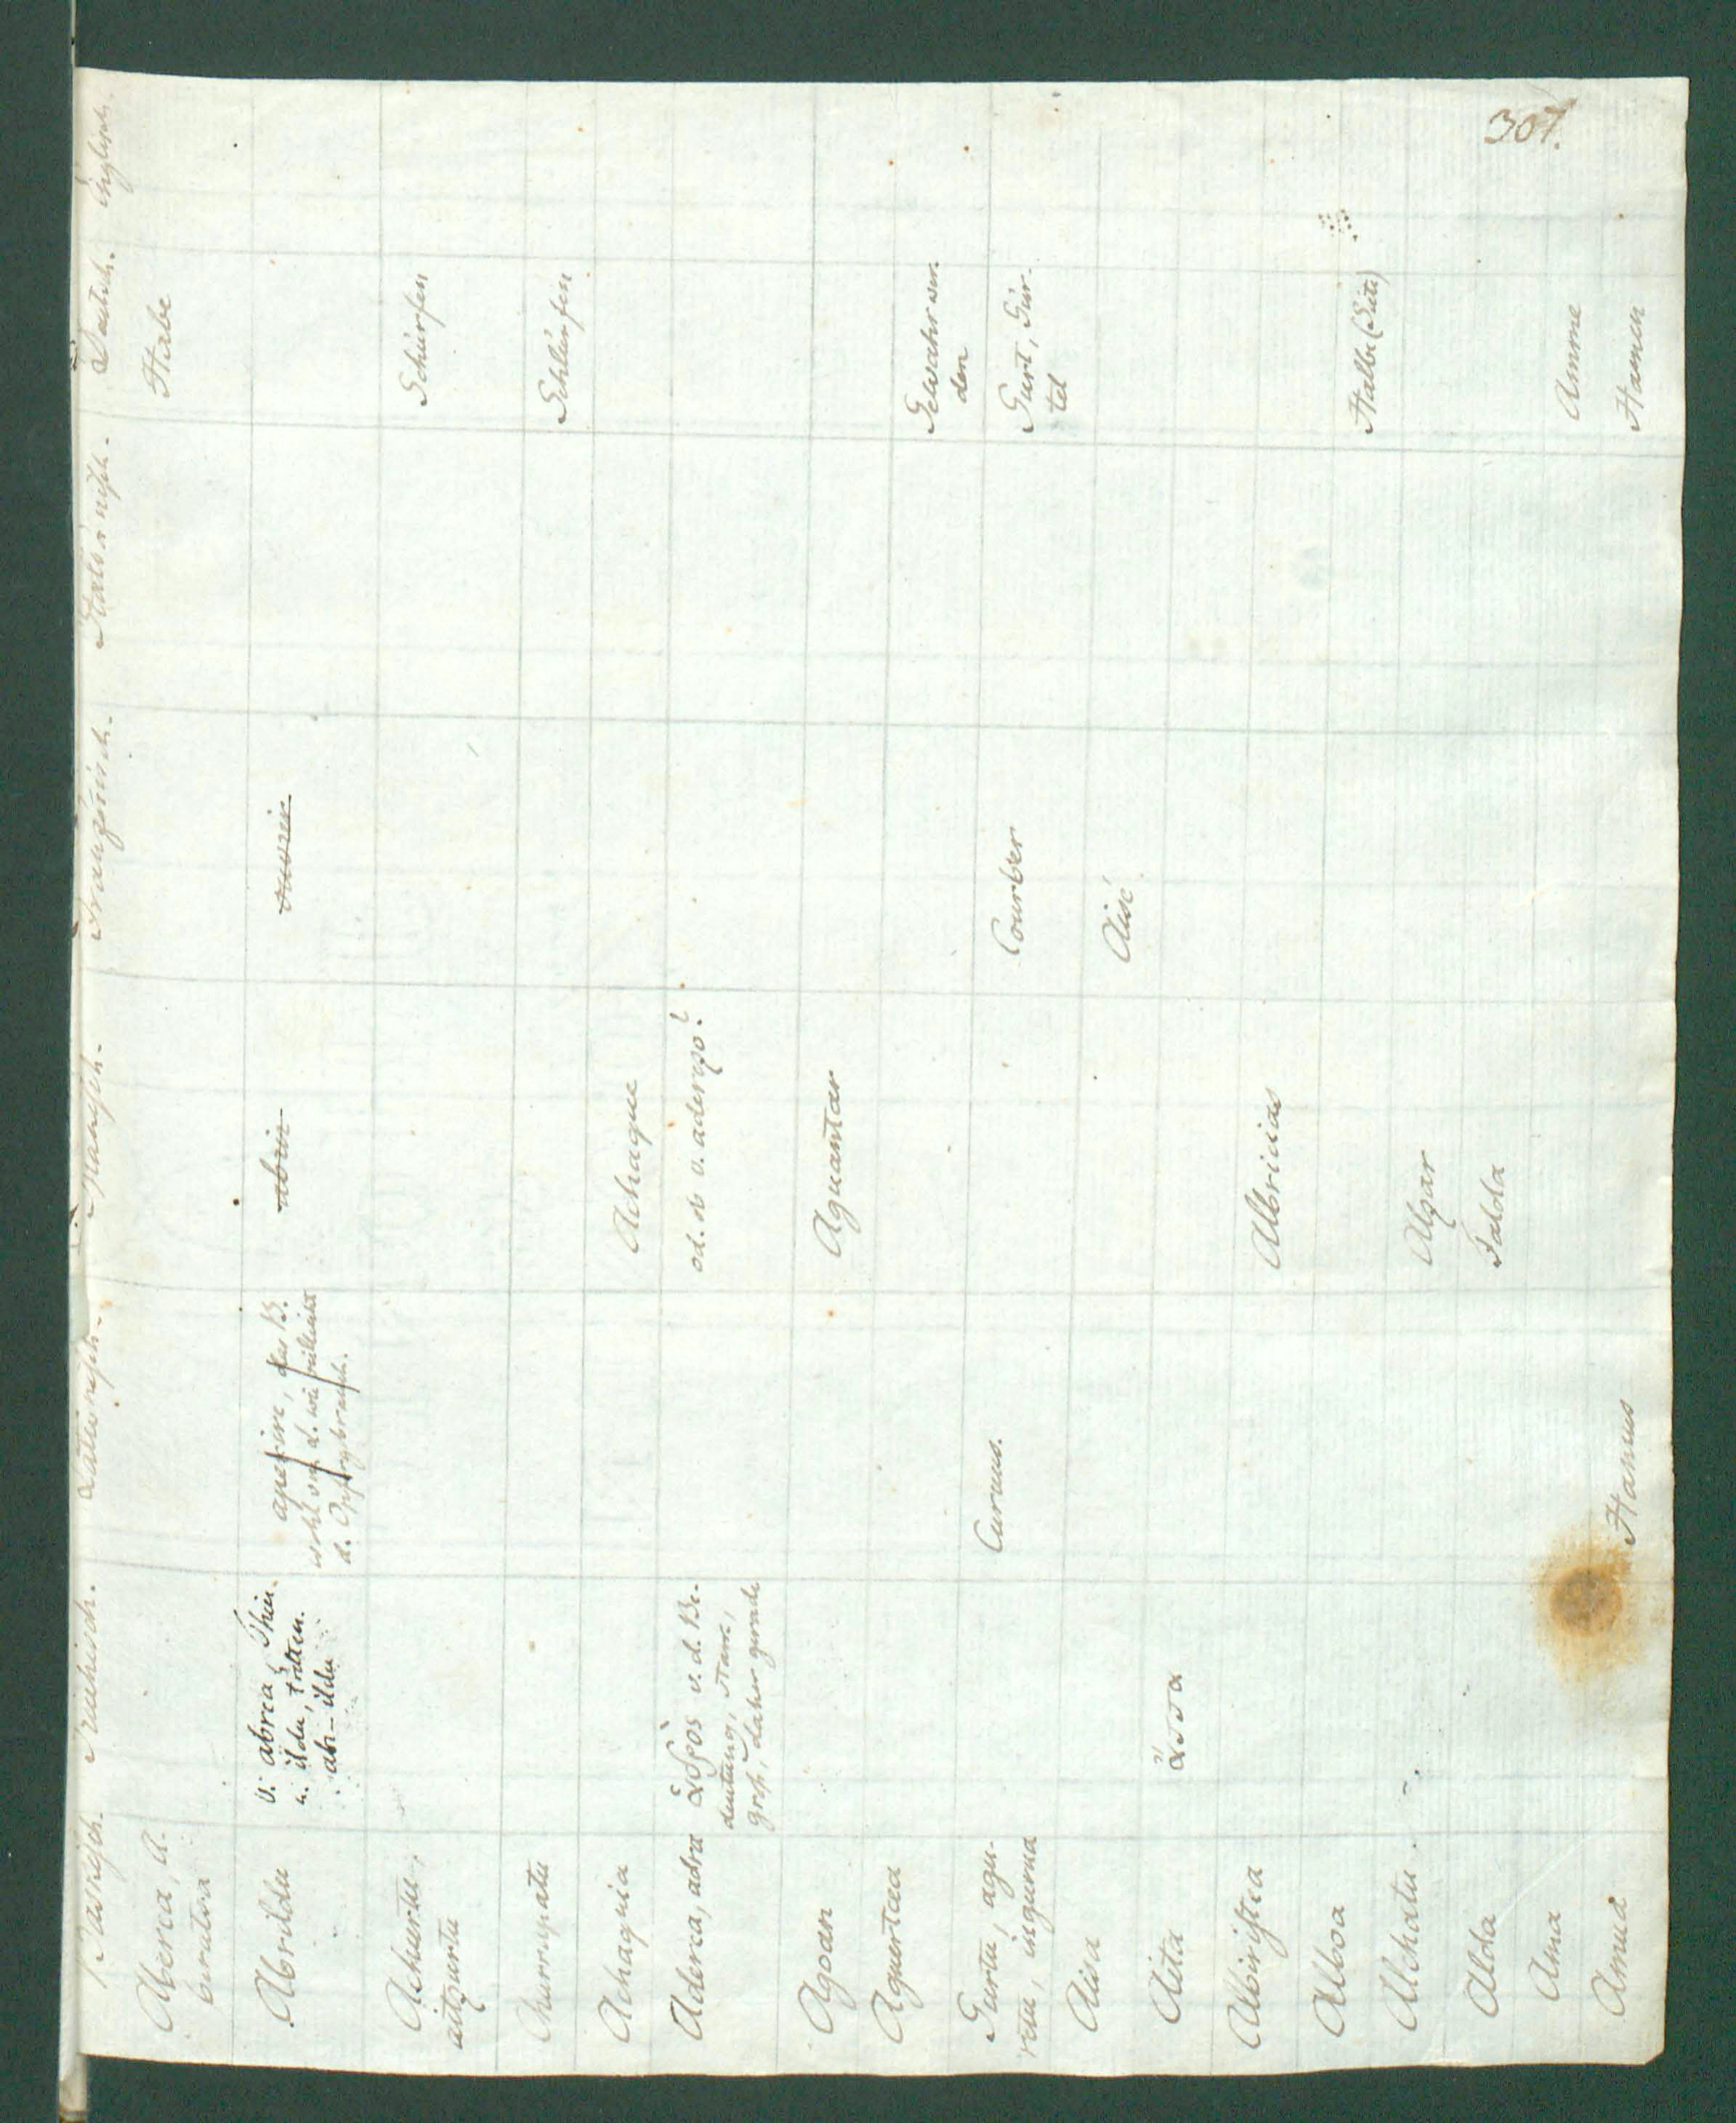 307.
Vaskisch. Griechisch. Lateinisch. Spanisch. Französisch. Italiänisch. Deutsch. Englisch.
Aberea, A-
beratsa
Habe
Abrildu
v. abrea, Thier
u. ildu, tödten.
abr-ildu
aperire, das B.
wohl von d. wie vielleicht
d. Opfergebrauch.
abrir
ouvrir
Achurtu,
aitzurtu
Schürfen
Churrupatu
Schlürfen
Achaquia
Achaque
Aderea, adra
ἁδρὸς v. d. Be-
deutung, stark,
groß, daher gerade
od. ist v. aderezo?
Agoan
Aguantar
Aguertcea
Gewahr wer-
den
Gurtu, agu-
rtu, ingurua
Curvus.
Courber
Gurt, Gür-
tel
Aisa
Aisé
Aita
ἄττα
Albiristea
Albricias
Alboa
Halbe (Seite)
Alchatu
Alzar
Alda
Falda
Ama
Amme
Amua
Hamus
Hamen